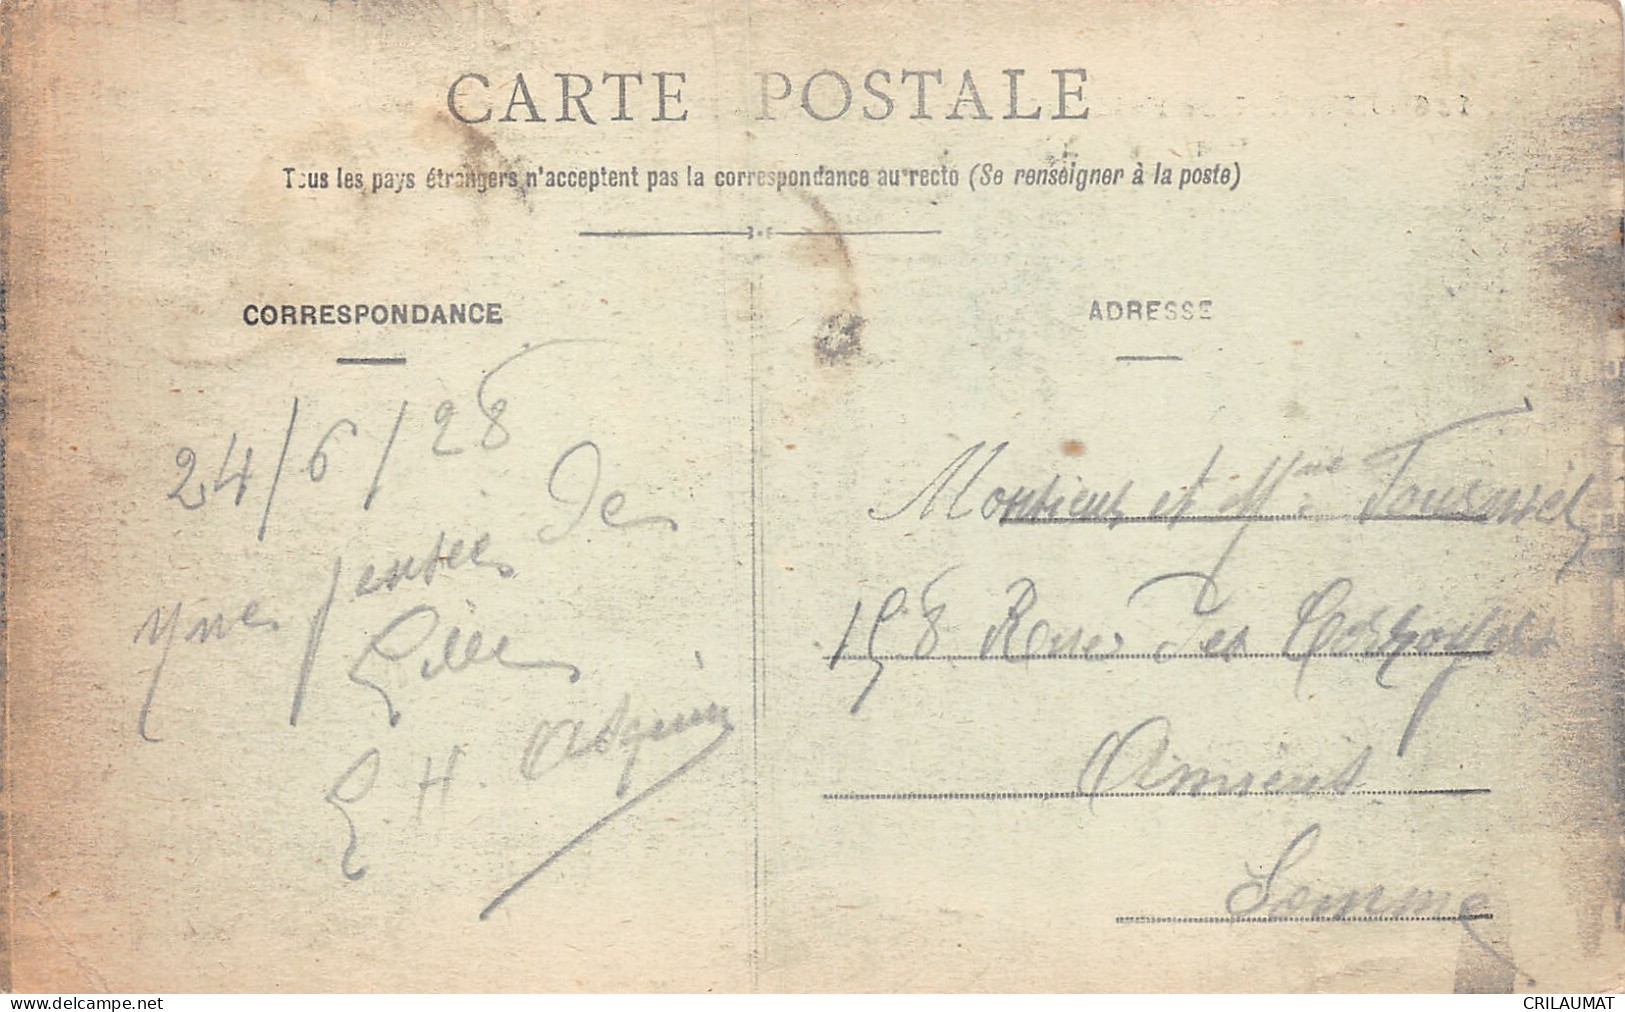 CARTE POSTALE
Tous les pays étrangers n'acceptent pas la correspondance au recto (Se renseigner à la poste)
CORRESPONDANCE
ADRESSE
24/6/28
Une pensée de
Lille
H.
Monsieur et Mme
158 Rue des
Amiens
Somme
www.delcampe.net
CRILAUMAT